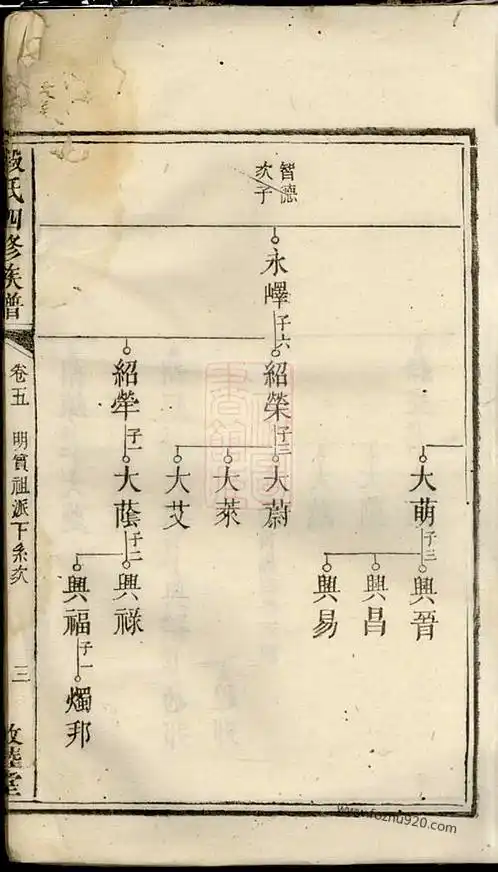 智德
次子
永嶧
子六
紹榮
子三
大蔚
大萊
大艾
大萌
子三
興晉
興昌
興易
紹犖
子一
大蔭
子二
興祿
興福
子一
燭邦
段氏四修族譜
卷五 明質祖派下系次
三
敦睦堂
www.fozhu920.com